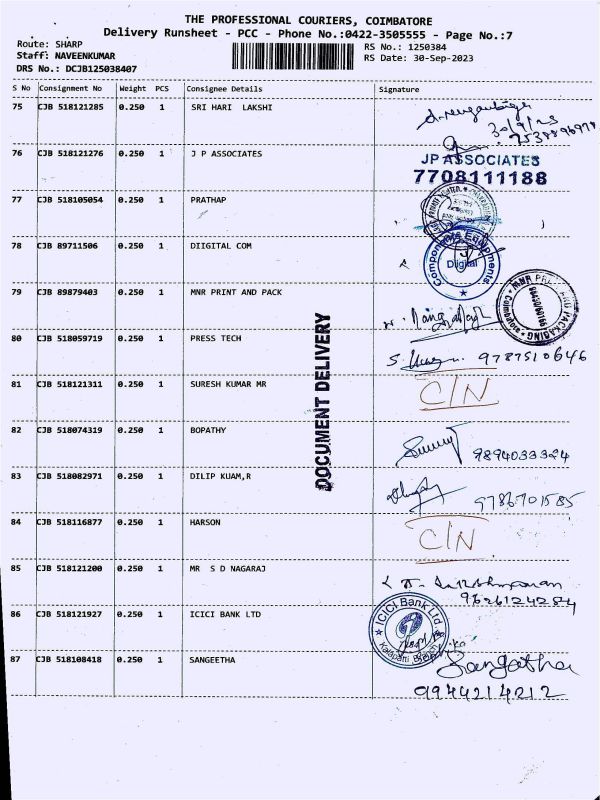 THE PROFESSIONAL COURIERS, COIMBATORE
Delivery Runsheet - PCC - Phone No.:0422-3505555 - Page No.:7
Route: SHARP
Staff: NAVEENKUMAR
DRS No.: DCJB125038407
RS No.: 1250384
RS Date: 30-Sep-2023
S No Consignment No Weight PCS Consignee Details Signature
75 CJB 518121285 0.250 1 SRI HARI LAKSHI
30/9/23
76 CJB 518121276 0.250 1 J P ASSOCIATES
JP ASSOCIATES
7708111188
77 CJB 518105054 0.250 1 PRATHAP
78 CJB 89711506 0.250 1 DIIGITAL COM
Components Equipments
Digital
79 CJB 89879403 0.250 1 MNR PRINT AND PACK
MNR PRINT AND PACKAGING
Coimbatore
80 CJB 518059719 0.250 1 PRESS TECH
9787510646
81 CJB 518121311 0.250 1 SURESH KUMAR MR
C/N
82 CJB 518074319 0.250 1 BOPATHY
9894033324
83 CJB 518082971 0.250 1 DILIP KUAM,R
9786701585
84 CJB 518116877 0.250 1 HARSON
C/N
85 CJB 518121200 0.250 1 MR S D NAGARAJ
9626124284
86 CJB 518121927 0.250 1 ICICI BANK LTD
ICICI Bank Ltd.
Kalapatti Branch
87 CJB 518108418 0.250 1 SANGEETHA
Sangetha
9944214212
DOCUMENT DELIVERY